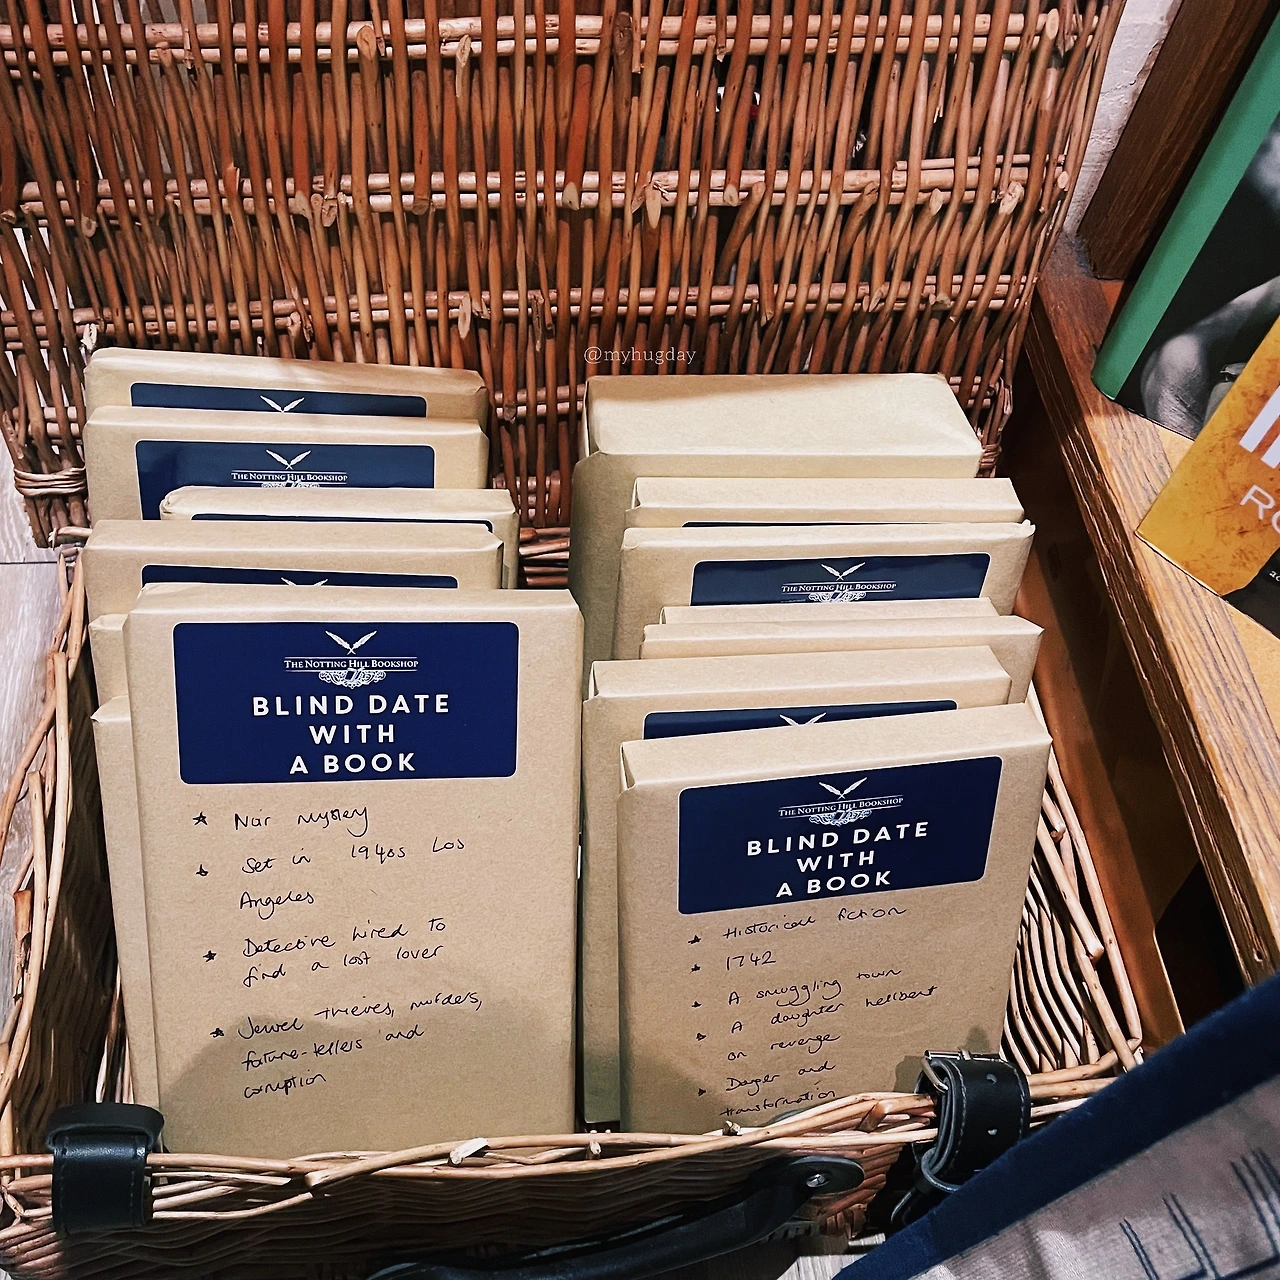 @myhugday
THE NOTTING HILL BOOKSHOP
THE NOTTING HILL BOOKSHOP
BLIND DATE
WITH
A BOOK
★ Noir mystery
★ Set in 1940s Los
Angeles
★ Detective hired to
find a lost lover
★ Jewel thieves, murders,
fortune-tellers and
corruption
THE NOTTING HILL BOOKSHOP
THE NOTTING HILL BOOKSHOP
BLIND DATE
WITH
A BOOK
★ Historical fiction
★ 1742
★ A smuggling town
★ A daughter hellbent
on revenge
★ Danger and
transformation